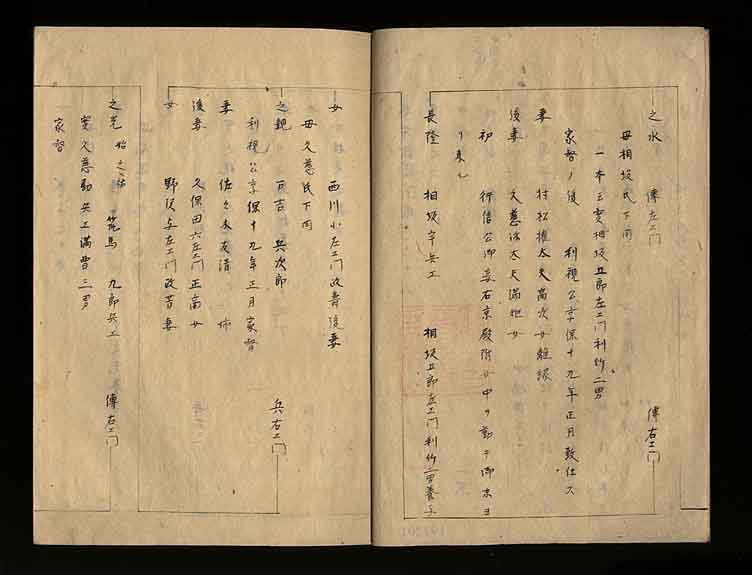 之水 傳左エ門 傳右エ門
母相坂氏下同
一本ニ実相坂五郎左エ門利竹二男
家督ノ後 利視公京保十九年正月致仕ス
妻 村松権太夫高次女離縁
後妻 久慈 太夫満 女
初 行信公御妾右京殿附女中ヲ勤テ御ホヨ
リ来ル
長隆 相坂宇兵エ 相坂五郎左エ門利竹二男養子
女 西川小左エ門改寿後妻
母久慈氏下同
之親 百吉 兵次郎 兵右エ門
利視公京保十九年正月家督
妻 佐々木友清 姉
後妻 久保田六左エ門正高女
女 野沢与左エ門改吉妻
之光 始之 馬 九郎兵エ 傳右エ門
実久慈勘兵エ満 三男
家督